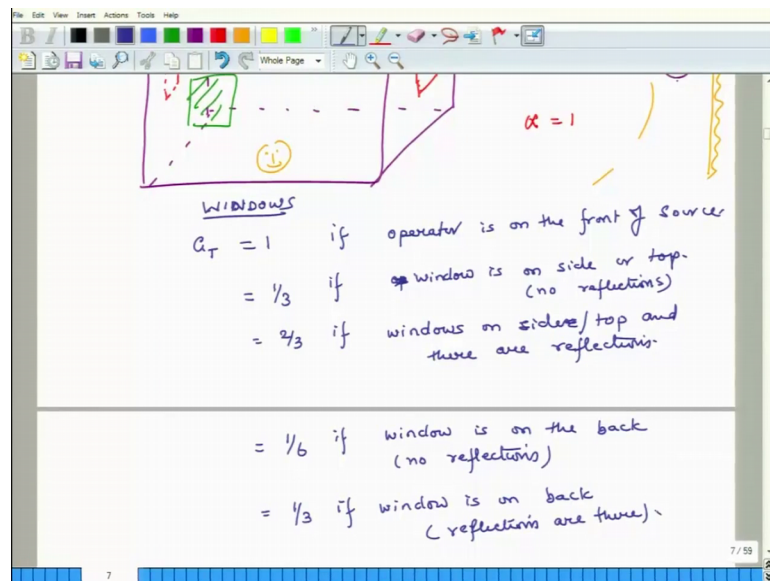 File Edit View Insert Actions Tools Help
B I
Whole Page
α = 1
WINDOWS
a_T = 1 if operator is on the front of source
= 1/3 if window is on side or top.
(no reflections)
= 2/3 if windows on side/top and
there are reflections.
= 1/6 if window is on the back
(no reflections)
= 1/3 if window is on back
(reflections are there).
7 / 59
7